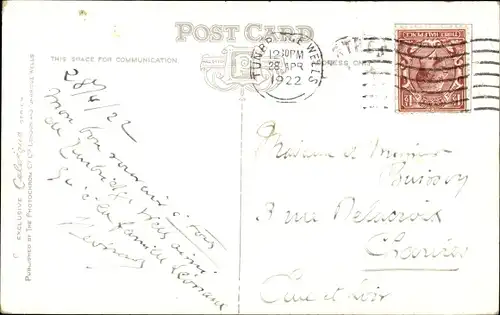 POST CARD
THIS SPACE FOR COMMUNICATION.
ADDRESS ONLY
TUNBRIDGE WELLS
12:30PM
28 APR
1922
THREE HALFPENCE
28/4/22
Mon bon souvenir à tous
de Tunbridge Wells ainsi
qu'à la famille
Madame et Monsieur
3 rue Delacroix
Chartres
Eure et Loir
EXCLUSIVE Celesque SERIES
PUBLISHED BY THE PHOTOCHROM CO LTD LONDON AND TUNBRIDGE WELLS